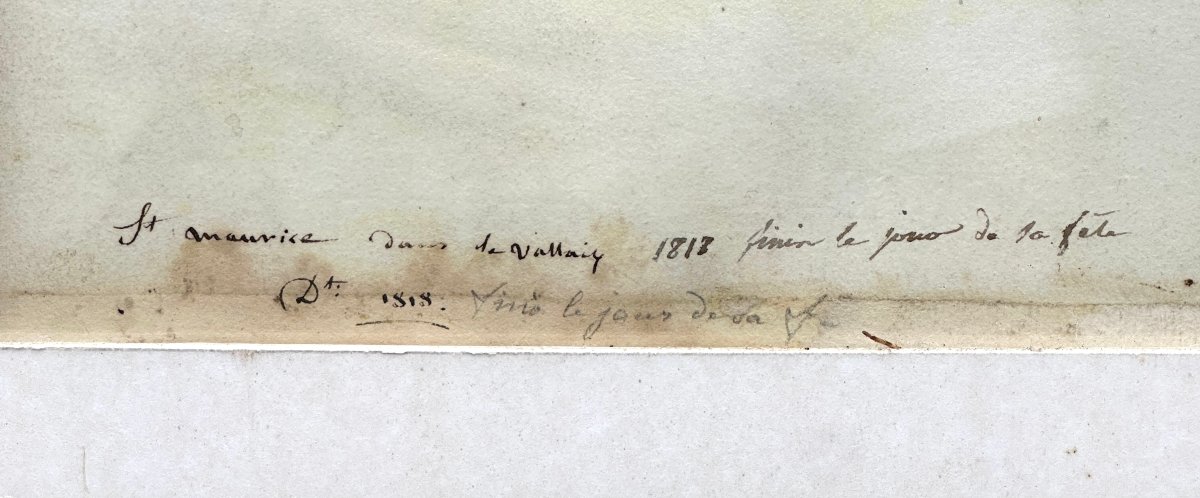 St maurice dans le Vallais 1818 finir le jour de sa fête
Dt. 1818. finir le jour de sa fe